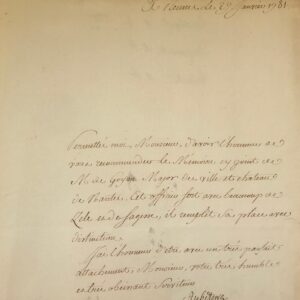 A Nantes Le 29 Janvier 1781
Permettés moi, Monsieur, d'avoir l'honneur de
vous recommander le Memoire cy joint de
M. de Goyon Major des ville et chateau
de Nantes. Cet officier sert avec beaucoup de
Zele et de sagesse, il remplit sa place avec
distinction
J'ai l'honneur d'etre avec un très parfait
attachement, Monsieur, votre très humble
et très obeissant Serviteur